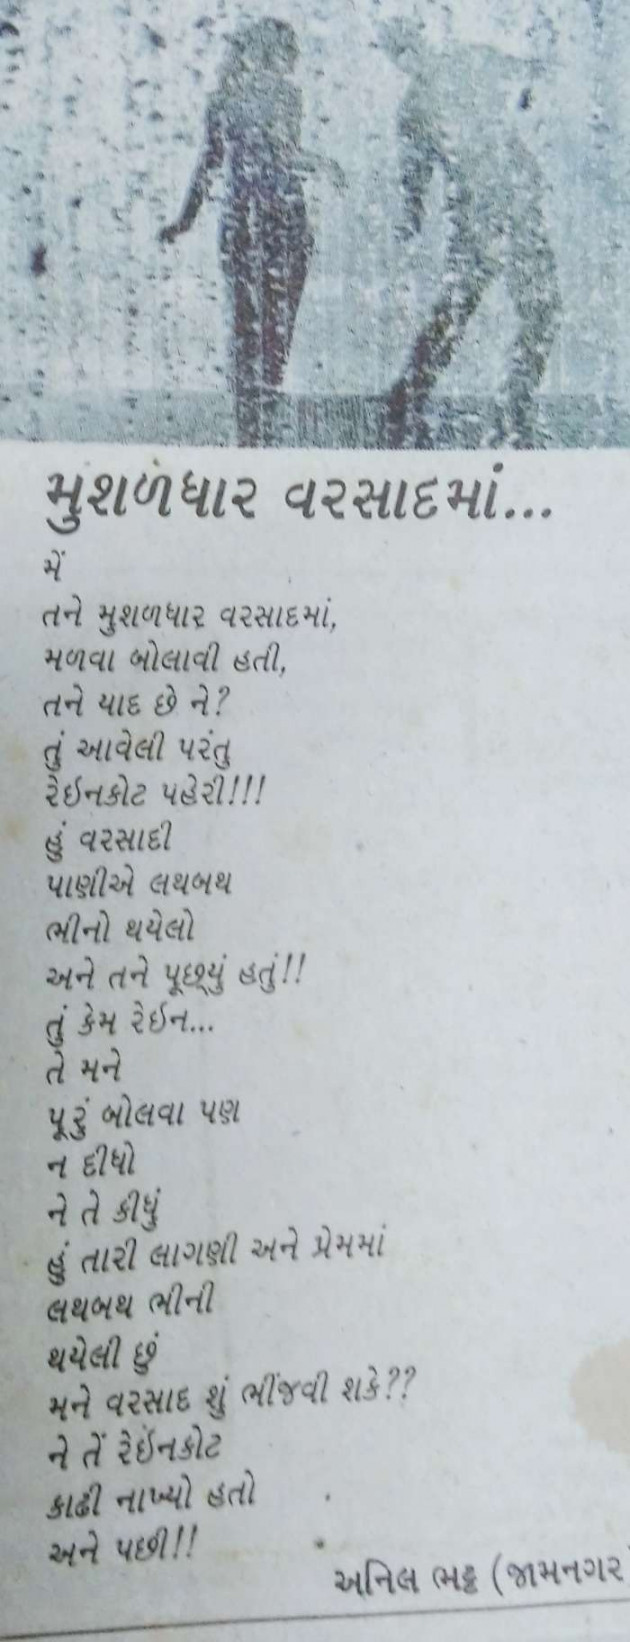 મુશળધાર વરસાદમાં...
મેં
તને મુશળધાર વરસાદમાં,
મળવા બોલાવી હતી,
તને યાદ છે ને?
તું આવેલી પરંતુ
રેઈનકોટ પહેરી!!!
હું વરસાદી
પાણીએ લથબથ
ભીનો થયેલો
અને તને પૂછ્યું હતું!!
તું કેમ રેઈન...
તે મને
પૂરું બોલવા પણ
ન દીધો
ને તે કીધું
હું તારી લાગણી અને પ્રેમમાં
લથબથ ભીની
થયેલી છું
મને વરસાદ શું ભીંજવી શકે??
ને તેં રેઈનકોટ
કાઢી નાખ્યો હતો
અને પછી!!
અનિલ ભટ્ટ (જામનગર)